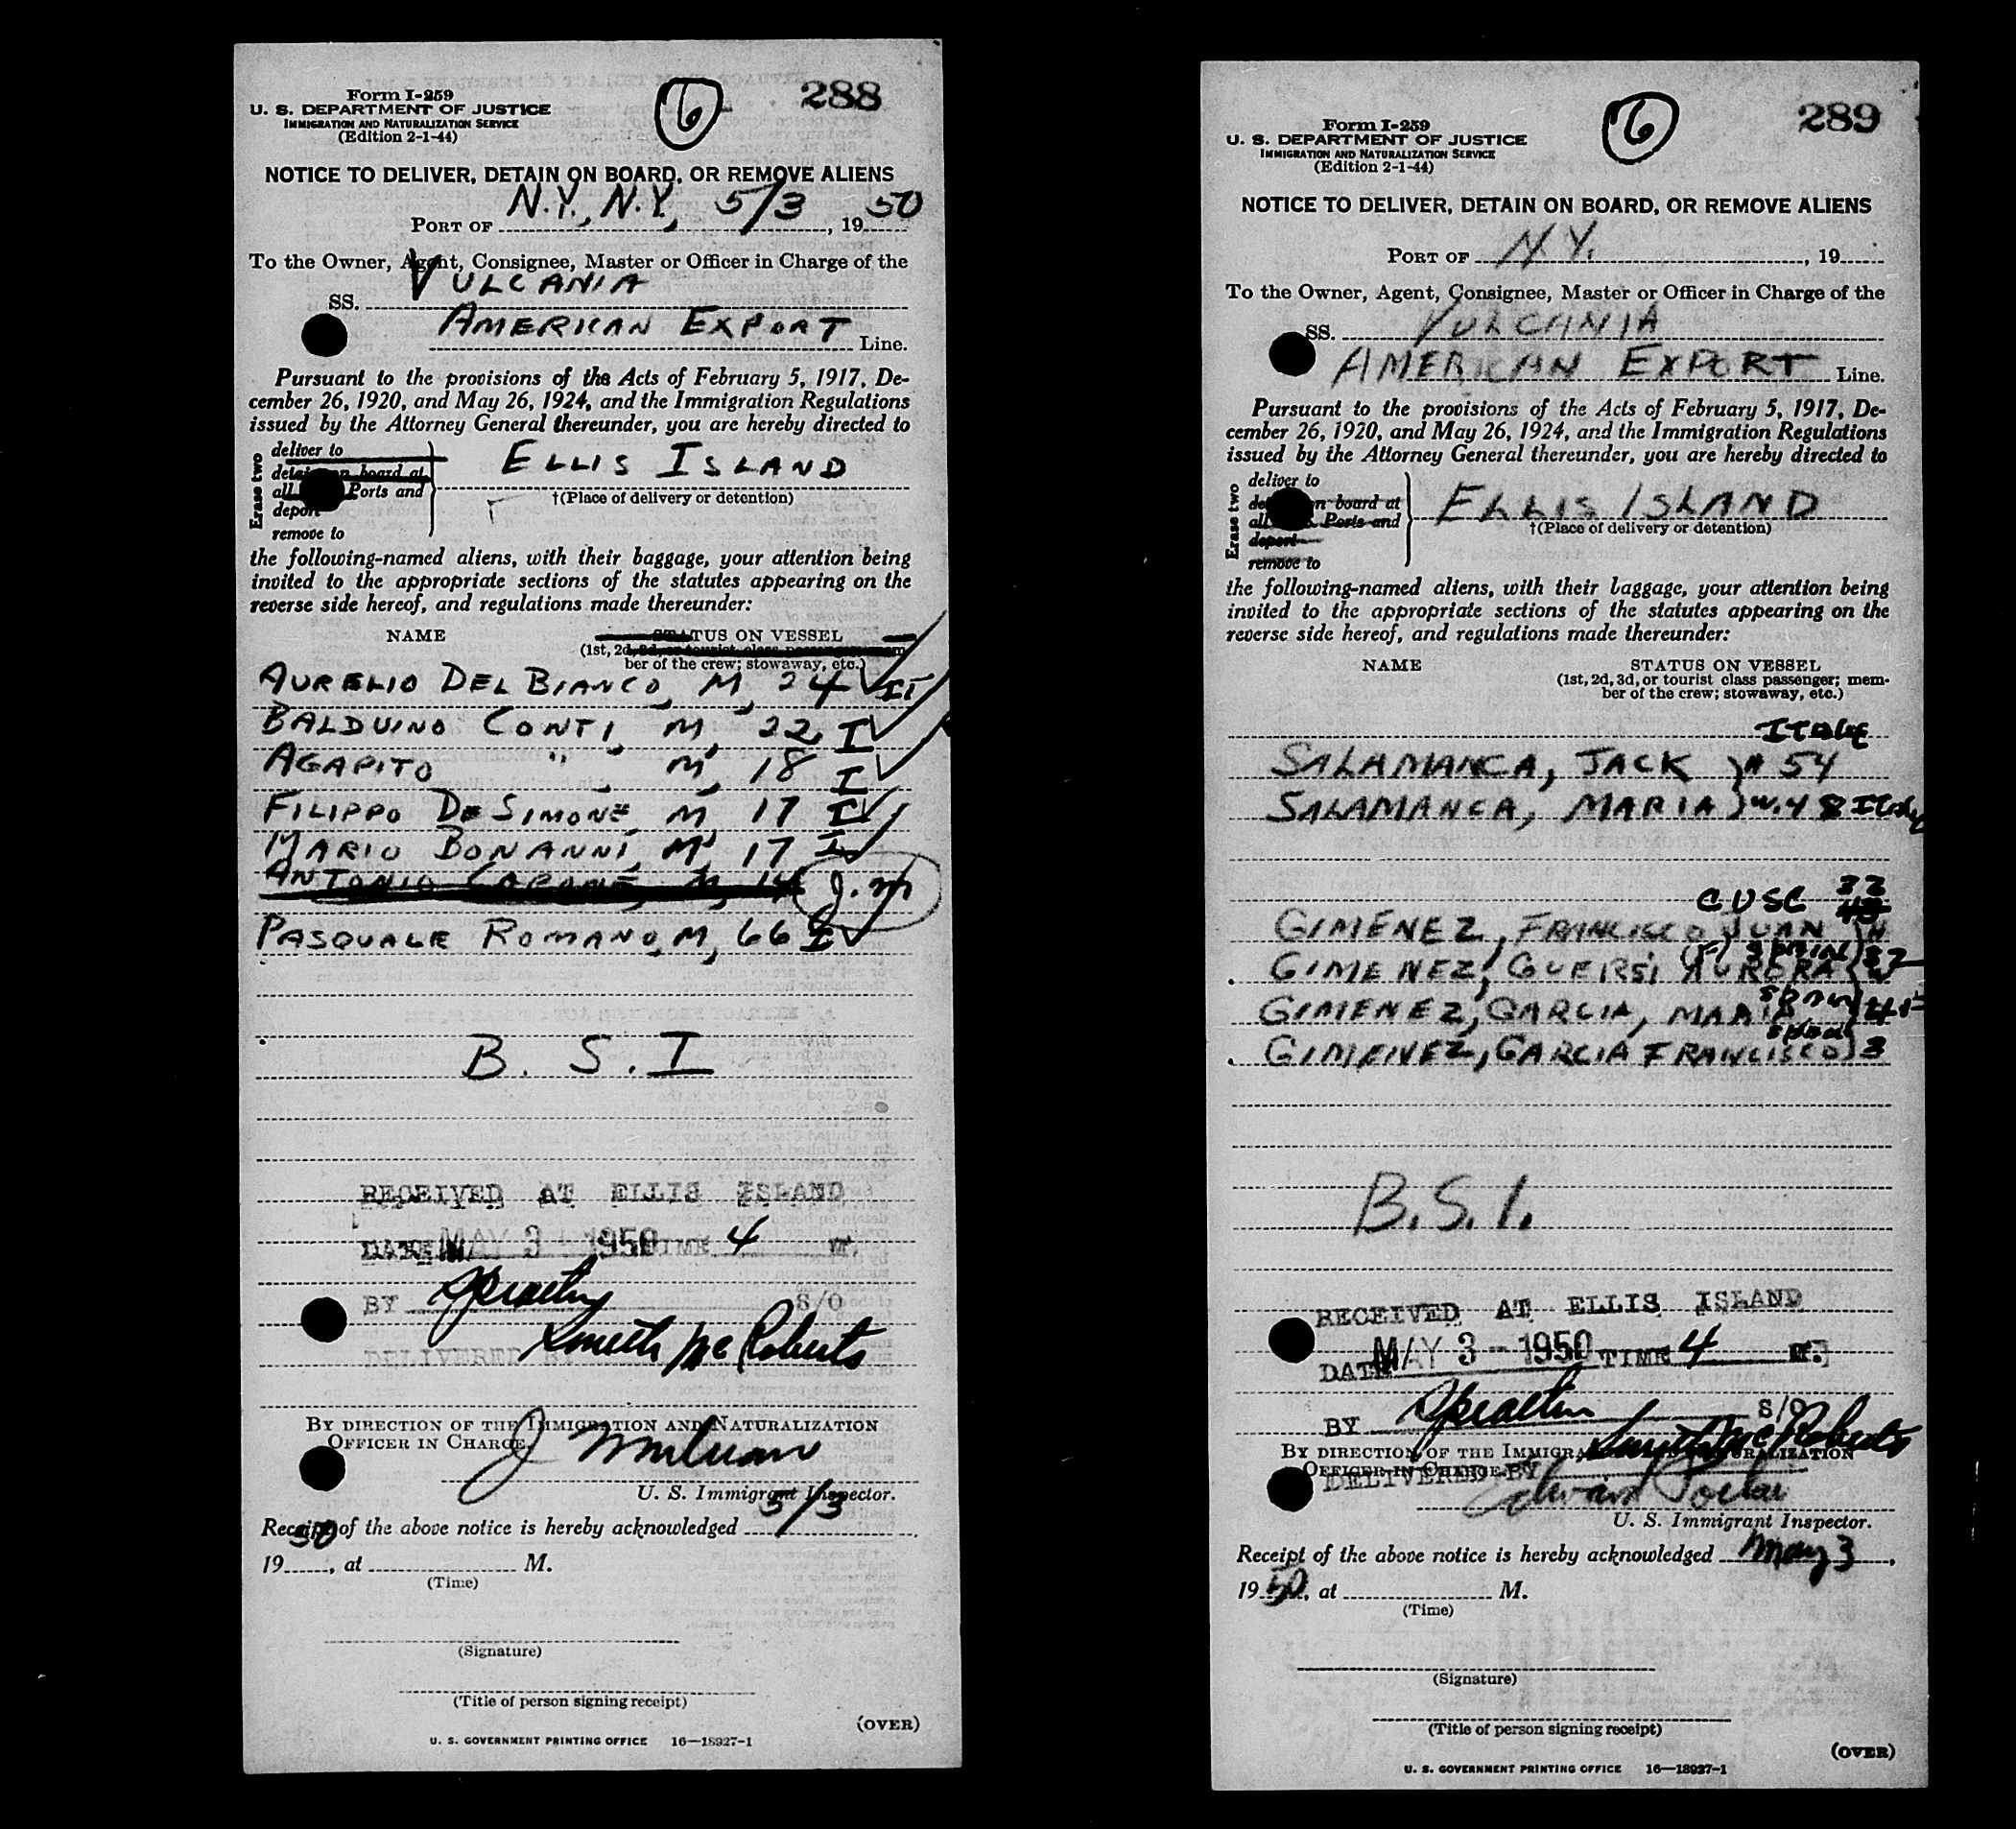 Form I-259
U. S. DEPARTMENT OF JUSTICE
IMMIGRATION AND NATURALIZATION SERVICE
(Edition 2-1-44)
6
288
NOTICE TO DELIVER, DETAIN ON BOARD, OR REMOVE ALIENS
PORT OF N.Y., N.Y., 5/3, 1950
To the Owner, Agent, Consignee, Master or Officer in Charge of the
SS. VULCANIA
AMERICAN EXPORT Line.
Pursuant to the provisions of the Acts of February 5, 1917, De-
cember 26, 1920, and May 26, 1924, and the Immigration Regulations
issued by the Attorney General thereunder, you are hereby directed to
Erase two
deliver to
detain on board at
all Ports and
deport
remove to
ELLIS ISLAND
†(Place of delivery or detention)
the following-named aliens, with their baggage, your attention being
invited to the appropriate sections of the statutes appearing on the
reverse side hereof, and regulations made thereunder:
NAME STATUS ON VESSEL
(1st, 2d, 3d, or tourist class passenger; mem-
ber of the crew; stowaway, etc.)
AURELIO DEL BIANCO, M, 24 IT
BALDUINO CONTI, M, 22, I
AGAPITO " , M, 18 I
FILIPPO DE SIMONE, M 17 I
MARIO BONANNI, M, 17 I
ANTONIO CAPONE, M, 14 J.M
PASQUALE ROMANO, M, 66 I
B. S. I
RECEIVED AT ELLIS ISLAND
DATE MAY 3 - 1950 TIME 4 M.
BY S/O
Smith McRoberts
DELIVERED BY
BY DIRECTION OF THE IMMIGRATION AND NATURALIZATION
OFFICER IN CHARGE.
U. S. Immigrant Inspector.
Receipt of the above notice is hereby acknowledged 5/3
1950, at M.
(Time)
(Signature)
(Title of person signing receipt)
(OVER)
U. S. GOVERNMENT PRINTING OFFICE 16—18927-1
Form I-259
U. S. DEPARTMENT OF JUSTICE
IMMIGRATION AND NATURALIZATION SERVICE
(Edition 2-1-44)
6
289
NOTICE TO DELIVER, DETAIN ON BOARD, OR REMOVE ALIENS
PORT OF N.Y. , 19
To the Owner, Agent, Consignee, Master or Officer in Charge of the
SS. VULCANIA
AMERICAN EXPORT Line.
Pursuant to the provisions of the Acts of February 5, 1917, De-
cember 26, 1920, and May 26, 1924, and the Immigration Regulations
issued by the Attorney General thereunder, you are hereby directed to
Erase two
deliver to
on board at
all Ports and
deport
remove to
ELLIS ISLAND
†(Place of delivery or detention)
the following-named aliens, with their baggage, your attention being
invited to the appropriate sections of the statutes appearing on the
reverse side hereof, and regulations made thereunder:
NAME STATUS ON VESSEL
(1st, 2d, 3d, or tourist class passenger; mem-
ber of the crew; stowaway, etc.)
Italy
SALAMANCA, JACK H 54
SALAMANCA, MARIA W. 48 Italy
C USC 32
GIMENEZ, FRANCISCO JUAN H
(F) SPAIN 32
GIMENEZ, GUERSI AURORA W
GIMENEZ, GARCIA, MARIA
GIMENEZ, GARCIA FRANCISCO 3
B.S.I.
RECEIVED AT ELLIS ISLAND
DATE MAY 3 - 1950 TIME 4 M.
BY S/O
Smith McRoberts
BY DIRECTION OF THE IMMIGRATION AND NATURALIZATION
OFFICER IN CHARGE.
DELIVERED BY
Edward
U. S. Immigrant Inspector.
Receipt of the above notice is hereby acknowledged May 3,
1950, at M.
(Time)
(Signature)
(Title of person signing receipt)
(OVER)
U. S. GOVERNMENT PRINTING OFFICE 16—18927-1